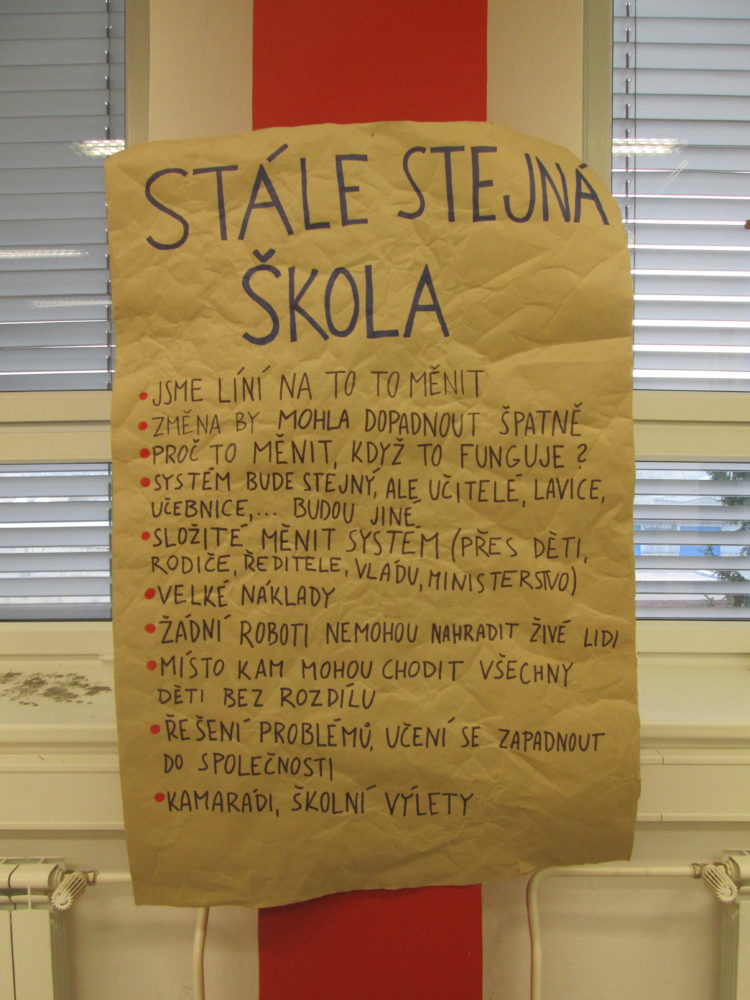 STÁLE STEJNÁ
ŠKOLA
• JSME LÍNÍ NA TO TO MĚNIT
• ZMĚNA BY MOHLA DOPADNOUT ŠPATNĚ
• PROČ TO MĚNIT, KDYŽ TO FUNGUJE?
• SYSTÉM BUDE STEJNÝ, ALE UČITELÉ, LAVICE,
UČEBNICE,... BUDOU JINÉ
• SLOŽITÉ MĚNIT SYSTÉM (PŘES DĚTI,
RODIČE, ŘEDITELE, VLÁDU, MINISTERSTVO)
• VELKÉ NÁKLADY
• ŽÁDNÍ ROBOTI NEMOHOU NAHRADIT ŽIVÉ LIDI
• MÍSTO KAM MOHOU CHODIT VŠECHNY
DĚTI BEZ ROZDÍLU
• ŘEŠENÍ PROBLÉMŮ, UČENÍ SE ZAPADNOUT
DO SPOLEČNOSTI
• KAMARÁDI, ŠKOLNÍ VÝLETY